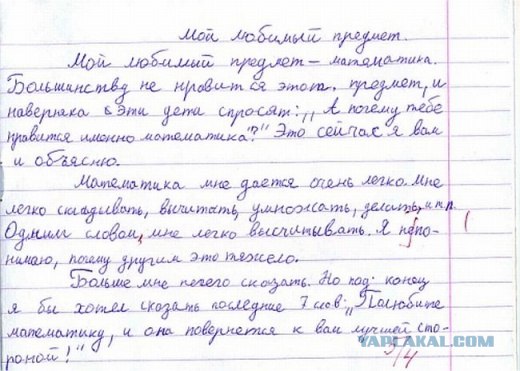 Мой любимый предмет.
Мой любимый предмет – математика.
Большинству не нравится этот предмет, и
наверняка эти дети спросят: „А почему тебе
нравится именно математика?" Это сейчас я вам
и объясню.
Математика мне дается очень легко. Мне
легко складывать, вычитать, умножать, делить, и т.п.
Одним словом, мне легко высчитывать. Я непо-
нимаю, почему другим это тяжело.
Больше мне нечего сказать. Но под конец
я бы хотел сказать последние 7 слов: „Полюбите
математику, и она повернется к вам лучшей сто-
роной!"
5/4
YAPLAKAL.COM